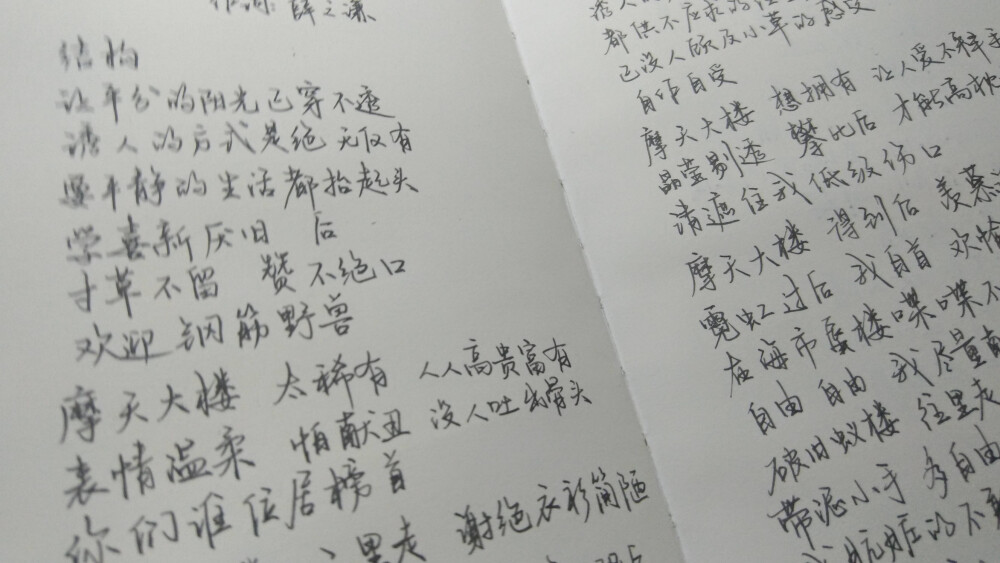 作词: 薛之谦
结构
让平分的阳光已穿不透
诱人的方式是绝无仅有
要平静的生活都抬起头
学喜新厌旧 后
寸草不留 赞不绝口
欢迎钢筋野兽
摩天大楼 太稀有 人人高贵富有
表情温柔 怕献丑 没人吐出骨头
你们谁位居榜首
里走 谢绝衣衫简陋
诱人的
都供不应求的
已没人顾及小草的感受
自作自受
摩天大楼 想拥有 让人爱不释手
晶莹剔透 攀比后 才能高枕
请遮住我低级伤口
摩天大楼 得到后 羡慕
霓虹过后 我自首 欢愉
在海市蜃楼喋喋不
自由 自由 我尽量
破旧蚁楼 往里走
带泥小手 多自由
我肮脏的不